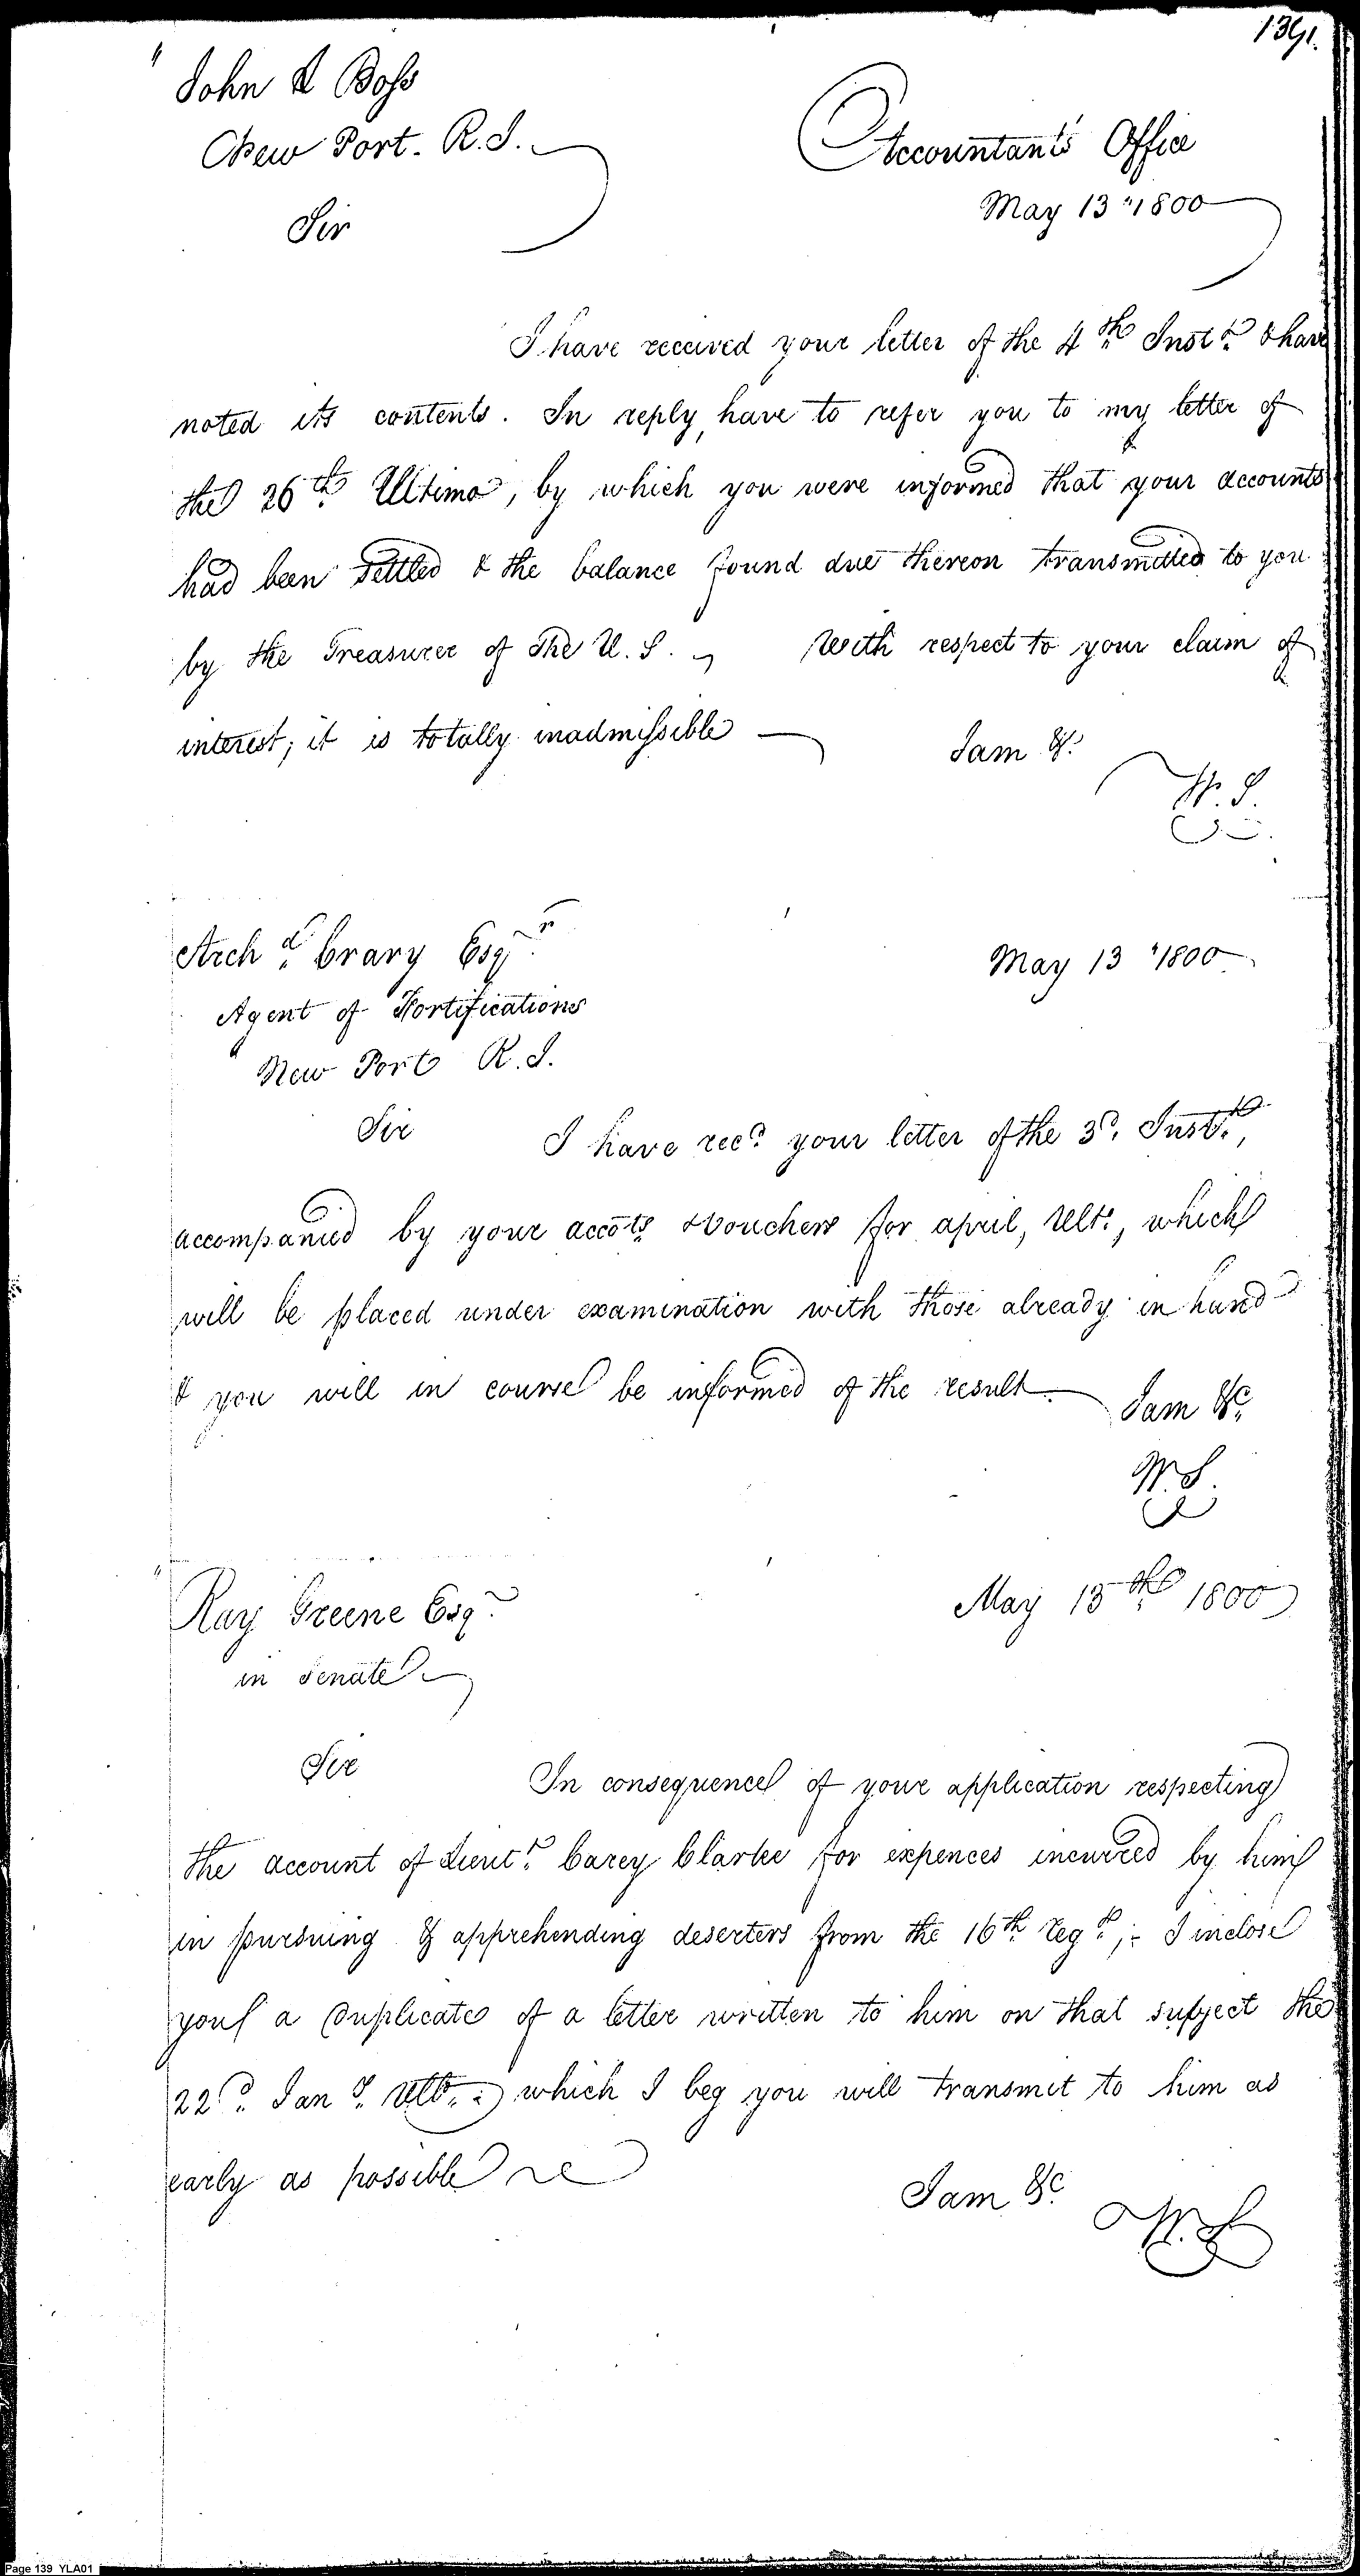 139.
John L Boss
New Port. R.I.
Accountant's Office
May 13 "1800
Sir
I have received your letter of the 4th Inst. & have
noted its contents. In reply, have to refer you to my letter of
the 26th Ultimo, by which you were informed that your accounts
had been settled & the balance found due thereon transmitted to you
by the Treasurer of the U. S. With respect to your claim of
interest; it is totally inadmissible
I am &c.
W. S.
Archd. Crary Esqr.
May 13 "1800
Agent of Fortifications
New Port R. I.
Sir
I have recd. your letter of the 3d. Inst.,
accompanied by your accots. & Vouchers for april, Ulto., which
will be placed under examination with those already in hand
& you will in course be informed of the result.
I am &c.
W. S.
Ray Greene Esqr.
May 13th 1800
in Senate
Sir
In consequence of your application respecting
the account of Lieut. Carey Clarke for expences incurred by him
in pursuing & apprehending deserters from the 16th regt.; - I inclose
you a duplicate of a letter written to him on that subject the
22d. Jany. Ulto.: which I beg you will transmit to him as
early as possible
I am &c.
W. S.
Page 139 YLA01